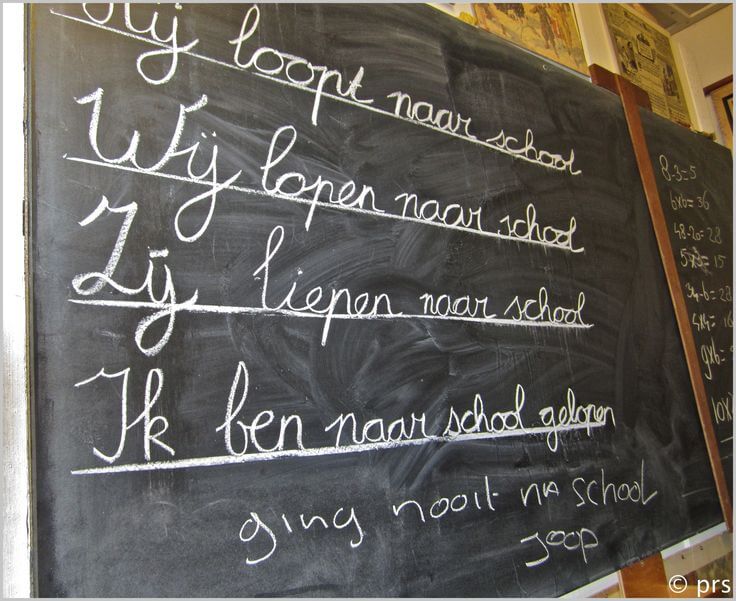 loopt naar school
Wij lopen naar school
Zij liepen naar school
Ik ben naar school gelopen
ging nooit na school
Joop
8-3=5
6x6=36
48-20=28
34-6=28
4x4=16
9x6=
10x
© prs